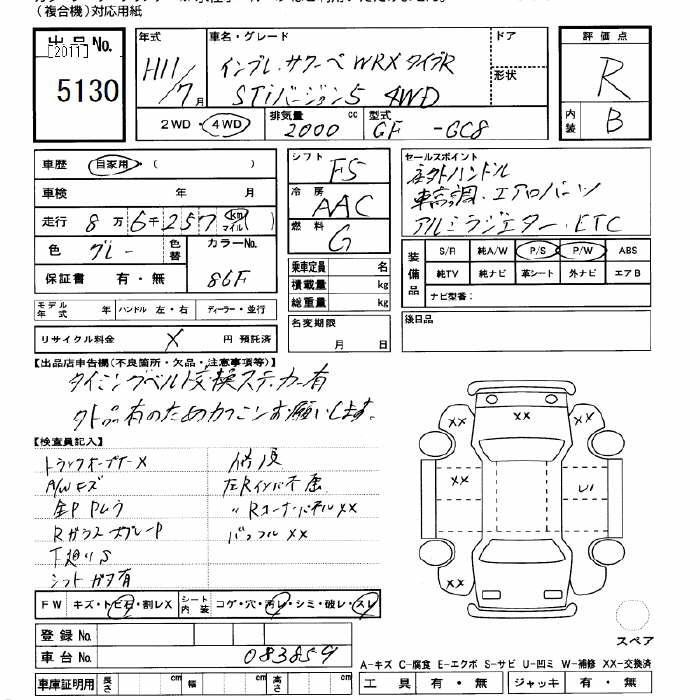 （複合機）対応用紙
出品No.
[2011]
5130
年式
H11/7月
車名・グレード
インプレッサクーペ WRX タイプR
STiバージョン5 4WD
ドア
形状
2WD・4WD
排気量
2000 cc
型式
GF -GC8
評価点
R
内装
B
車歴 自家用・( )
車検 年 月
走行 8万6千257 km マイル ( )
色 グレー 色替 カラーNo. 86F
保証書 有・無
モデル年式 年 ハンドル 左・右 ディーラー・並行
リサイクル料金 X 円 預託済
シフト F5
冷房 AAC
燃料 G
乗車定員 名
積載量 kg
総重量 kg
名変期限 月 日
セールスポイント
社外ハンドル
車高調・エアロパーツ
アルミラジエター・ETC
装備品
S/R 純A/W P/S P/W ABS
純TV 純ナビ 革シート 外ナビ エアB
ナビ型番：
後日品
【出品店申告欄（不良箇所・欠品・注意事項等）】
タイミングベルト交換ステッカー有
外品有のためカクニンお願いします。
【検査員記入】
トランクオープナーX
A/W キズ
Rガラス スプレーP
下廻りS
シフト ガタ有
修復
左Rインパネ 歪
〃 Rコーナーパネル XX
バックフル XX
FW キズ・トビ石・割レX
シート内装 コゲ・穴・汚レ・シミ・破レ・スレ
登録No.
車台No. 083859
車庫証明用 長さ cm 幅 cm 高さ cm
XX
XX
XX
XX
XX
U1
スペア
A-キズ C-腐食 E-エクボ S-サビ U-凹ミ W-補修 XX-交換済
工具 有・無 ジャッキ 有・無